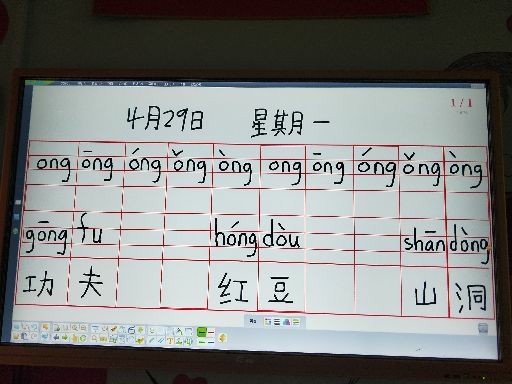 1/1
4月29日 星期一
ong ōng óng ǒng òng ong ōng óng ǒng òng
gōng fu hóng dòu shān dòng
功 夫 红 豆 山 洞